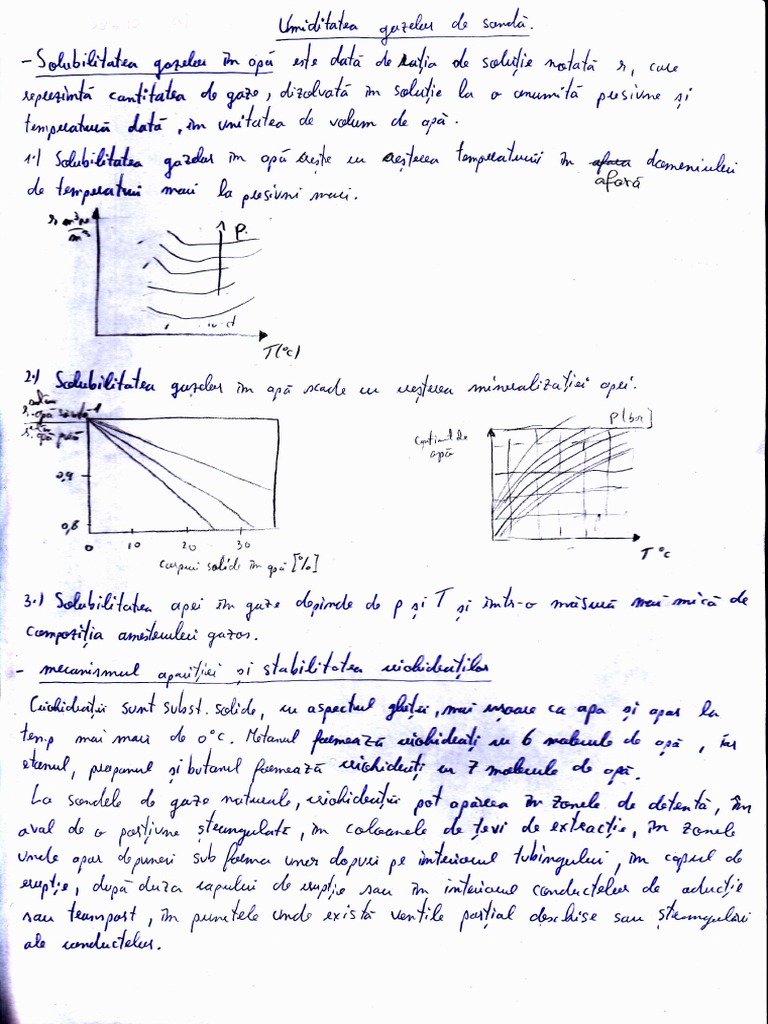 Umiditatea gazelor de sondă.
- Solubilitatea gazelor în apă este dată de rația de soluție notată r, care
reprezintă cantitatea de gaze, dizolvată în soluție la o anumită presiune și
temperatură dată, în unitatea de volum de apă.
1.) Solubilitatea gazelor în apă crește cu creșterea temperaturii în domeniului
afară
de temperaturi mari la presiuni mari.
P.
T(°C)
2.) Solubilitatea gazelor în apă scade cu creșterea mineralizației apei.
P[bar]
conținut de
apă
0,9
0,8
0 10 20 30
corpuri solide în apă [%]
T °C
3.) Solubilitatea apei în gaze depinde de p și T și într-o măsură mai mică de
compoziția amestecului gazos.
- mecanismul apariției și stabilitatea criohidraților
Criohidrații sunt subst. solide, cu aspectul gheții, mai ușoare ca apa și apar la
temp mai mari de 0°C. Metanul formează criohidrați cu 6 molecule de apă, iar
etanul, propanul și butanul formează criohidrați cu 7 molecule de apă.
La sondele de gaze naturale, criohidrații pot apărea în zonele de detentă, în
aval de o porțiune ștrangulată, în coloanele de țevi de extracție, în zonele
unde apar depuneri sub forma unor dopuri pe interiorul tubingului, în capul de
erupție, după duza capului de erupție sau în interiorul conductelor de aducție
sau transport, în punctele unde există ventile parțial deschise sau ștrangulări
ale conductelor.